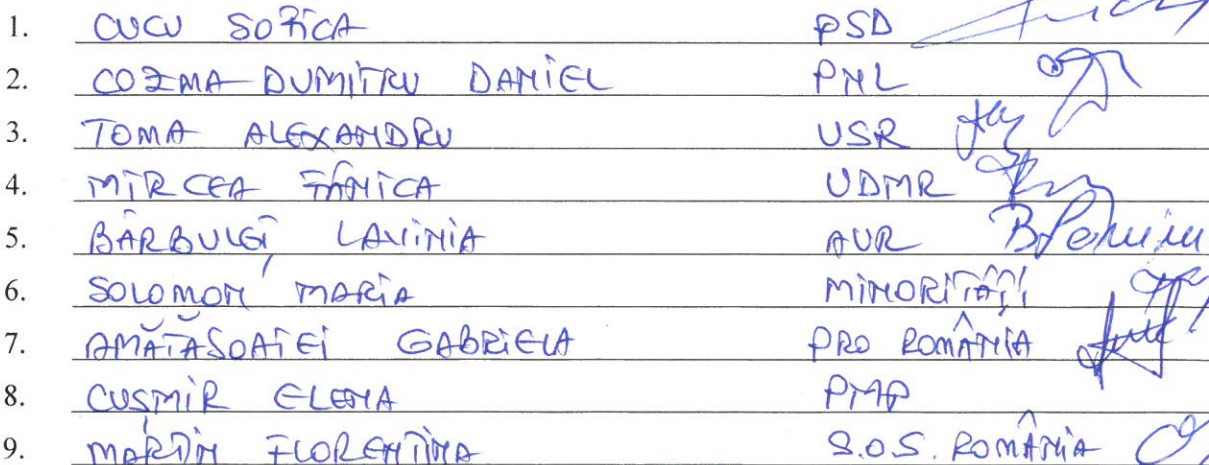 1. CUCU SOFICA PSD
2. COZMA DUMITRU DANIEL PNL
3. TOMA ALEXANDRU USR
4. MIRCEA FĂNICA UDMR
5. BĂRBULEȚ LAVINIA AUR
6. SOLOMON MARIA MINORITĂȚI
7. AMĂTĂSOAIEI GABRIELA PRO ROMÂNIA
8. CUSMIR ELENA PMP
9. MARTIN FLORENTINA S.O.S. ROMÂNIA